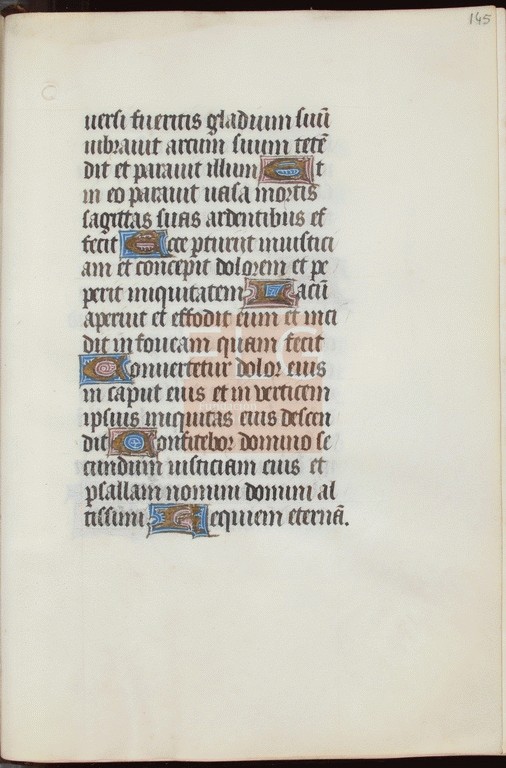 145
uersi fueritis gladium suũ
uibrauit arcum suum tetẽ
dit et parauit illum Et
in eo parauit uasa mortis
sagittas suas ardentibus ef
fecit Ecce pturiit iniustici
am et concepit dolorem et pe
perit iniquitatem Lacũ
aperuit et effodit eum et inci
dit in foueam quam fecit
Conuertetur dolor eius
in caput eius et in verticem
ipsius iniquitas eius descen
dit Confitebor domino se
cundum iusticiam eius et
psallam nomini domini al
tissimi Requiem eternã.